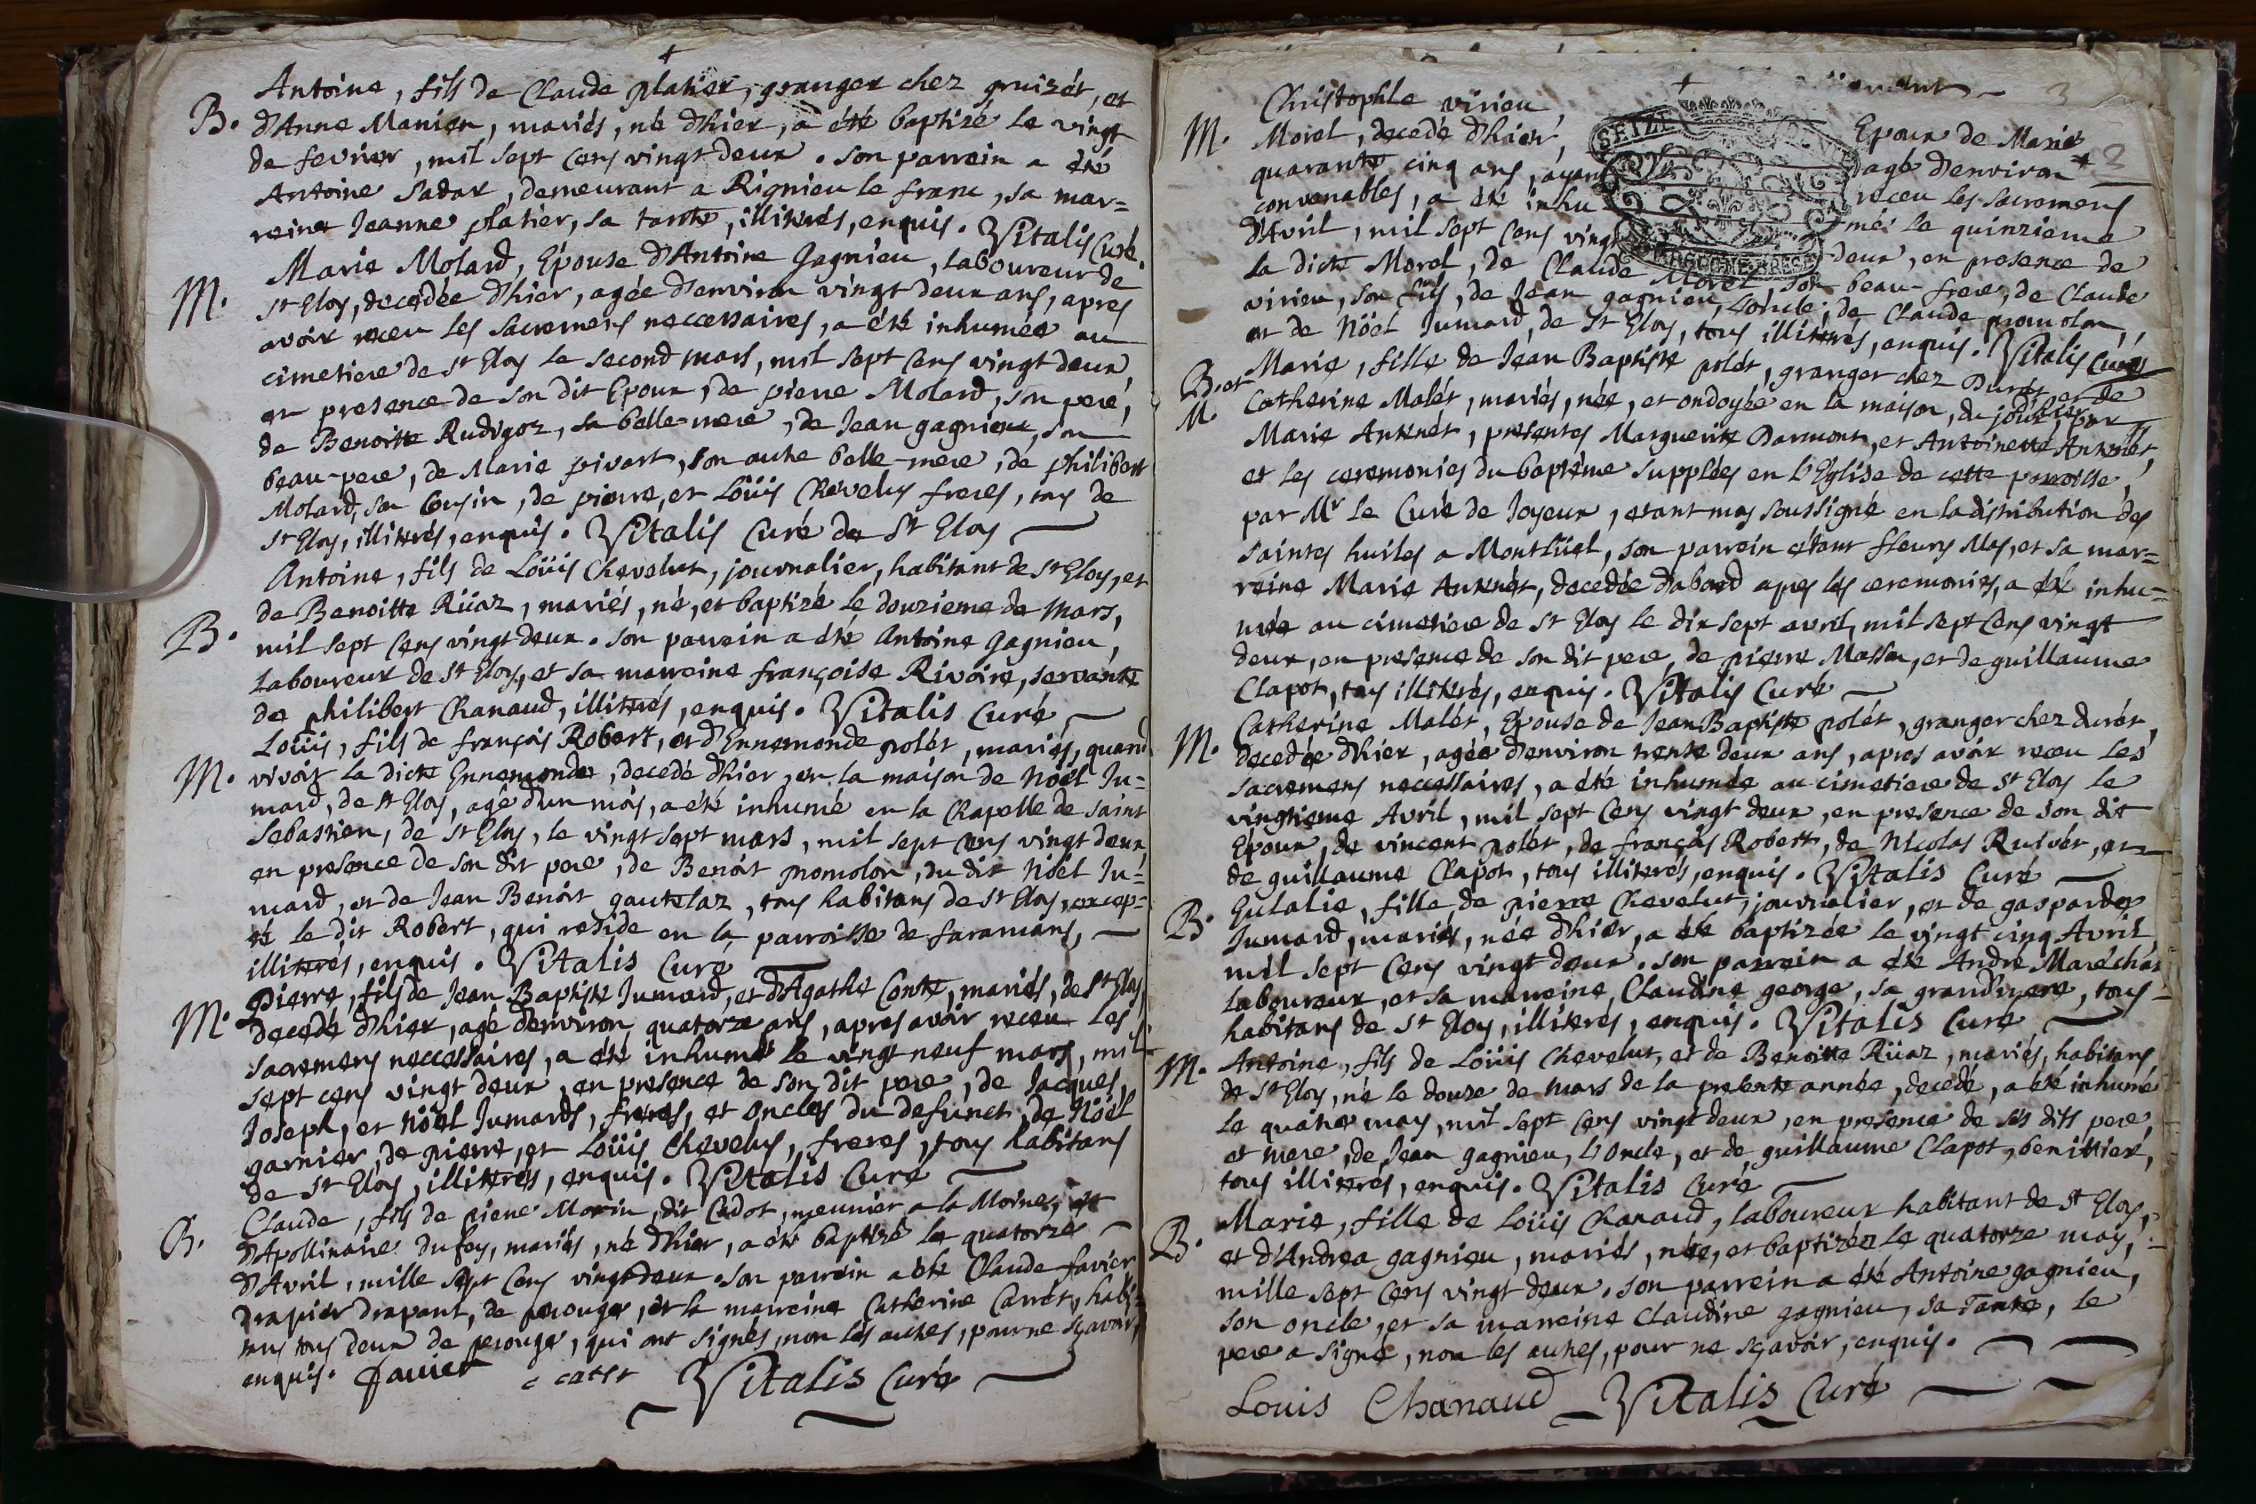 Antoine, fils de Claude platier, granger chez gruizét, et
B. d'Anne Manier, mariés, né d'hier, a été baptizé le vingt
de fevrier, mil sept cens vingt deux. son parrein a été
Antoine Sadar, demeurant a Rignieu le franc, sa mar=
reine Jeanne platier, sa tante, illiterés, enquis. Vitalis Curé.
Marie Molard, Epouse d'Antoine Gagnieu, laboureur de
M. St Eloy, decedée d'hier, agée d'environ vingt deux ans, apres
avoir receu les sacremens neccessaires, a été inhumée au
cimetiere de St Eloy le second mars, mil sept cens vingt deux,
en presence de son dit Epoux, de pierre Molard, son pere,
de Benoitte Rudigoz, sa belle-mere, de Jean gagnieu, son
beau-pere, de Marie pivart, son autre belle-mere, de philibert
Molard, son Cousin, de pierre, et Loüis Chevelus freres, tous de
St Eloy, illiterés, enquis. Vitalis Curé de St Eloy
Antoine, fils de Loüis Chevelut, journalier, habitant de St Eloy, et
de Benoitte Rüaz, mariés, né, et baptizé le douzieme de Mars,
B. mil sept cens vingt deux. son parrein a été Antoine Gagnieu,
Laboureur de St Eloy, et sa marreine françoise Rivoire, servante
de philibert Chanaud, illiterés, enquis. Vitalis Curé
Loüis, fils de françois Robert, et d'Ennemonde polét, mariés, quand
M. vivoit la dicte Ennemonde, decedé d'hier, en la maison de Nöel Ju=
mard, de St Eloy, agé d'un mois, a été inhumé en la Chapelle de saint
Sebastien, de St Eloy, le vingt sept mars, mil sept cens vingt deux,
en presence de son dit pere, de Benoit promolon, du dit Nöel Ju=
mard, et de Jean Benoit gautelaz, tous habitans de St Eloy, excep=
té le dit Robert, qui reside en la parroisse de faramans,
illiterés, enquis. Vitalis Curé
Pierre, fils de Jean Baptiste Jumard, et d'Agathe Conte, mariés, de St Eloy,
M. decedé d'hier, agé d'environ quatorze ans, apres avoir receu les
sacremens neccessaires, a été inhumé le vingt neuf mars, mil
sept cens vingt deux, en presence de son dit pere, de Jacques,
Joseph, et Nöel Jumards, freres, et oncles du defunct, de Nöel
garnier, de pierre, et Loüis Chevelus, freres, tous habitans
de St Eloy, illiterés, enquis. Vitalis Curé
Claude, fils de pierre Morin, dit Cadot, meunier a la Moine, et
B. d'Apollinaire Dufey, mariés, né d'hier, a été baptizé le quatorze
d'Avril, mille sept cens vingt deux. son parrein a été Claude favier
drapier drapant, de perouge, et la marreine Catherine Carrét, habi=
tans tous deux de perouge, qui ont signés, non les autres, pour ne sçavoir,
enquis. favier Vitalis Curé
3
Christophle virieu Epoux de Marie
M. Morel, decedé d'hier, agé d'environ
2
quarante cinq ans, ayant receu les sacremens
convenables, a été inhu=mé le quinzieme
d'Avril, mil sept cens vingt deux, en presence de
la dicte Morel, de Claude Morel, son beau-frere, de Claude
virieu, son fils, de Jean gagnieu, L'oncle, de Claude promolon,
et de Nöel Jumard, de St Eloy, tous illiterés, enquis. Vitalis Curé
SEIZE
BOURGOGNE BRESSE
Marie, fille de Jean Baptiste polét, granger chez Durét, et de
B. et M. Catherine Malét, mariés, née, et ondoyée en la maison, du jour d'hier, par
Marie Antenét, presentes Marguerite Darmont, et Antoinette Antenét,
et les ceremonies du baptême supplées en l'Eglise de cette parroisse,
par Mr le Curé de Joyeux, etant moy soussigné en la distribution des
saintes huiles a Montlüel, son parrein étant fleury Mas, et sa mar=
reine Marie Antenét, decedée d'abord apres les ceremonies, a été inhu=
mée au cimetiere de St Eloy le dix sept avril, mil sept cens vingt
deux, en presence de son dit pere, de pierre Masson, et de guillaume
Clapot, tous illiterés, enquis. Vitalis Curé
Catherine Malét, Epouse de Jean Baptiste polét, granger chez durét,
M. decedée d'hier, agée d'environ trente deux ans, apres avoir receu les
sacremens neccessaires, a été inhumée au cimetiere de St Eloy le
vingtieme Avril, mil sept cens vingt deux, en presence de son dit
Epoux, de vincent polét, de françois Robert, de Nicolas Ruivét, et
de guillaume Clapot, tous illiterés, enquis. Vitalis Curé
Eulalie, fille de pierre Chevelut, journalier, et de gasparde
B. Jumard, mariés, née d'hier, a été baptizée le vingt cinq Avril
mil sept cens vingt deux. son parrein a été André Maréchal
Laboureur, et sa marreine, Claudine george, sa grand'mere, tous
habitans de St Eloy, illiterés, enquis. Vitalis Curé
Antoine, fils de Loüis Chevelut, et de Benoitte Rüaz, mariés, habitans
M. de St Eloy, né le douze de Mars de la presente année, decedé, a été inhumé
le quatre may, mil sept cens vingt deux, en presence de ses dits pere,
et mere, de Jean gagnieu, L'oncle, et de guillaume Clapot, benittier,
tous illiterés, enquis. Vitalis Curé
Marie, fille de Loüis Chanaud, laboureur habitant de St Eloy,
B. et d'Andrea gagnieu, mariés, née, et baptizée le quatorze may,
mille sept cens vingt deux. son parrein a été Antoine gagnieu,
son oncle, et sa marreine Claudine gagnieu, sa Tante, le
pere a signé, non les autres, pour ne sçavoir, enquis.
Louis Chanaud Vitalis Curé